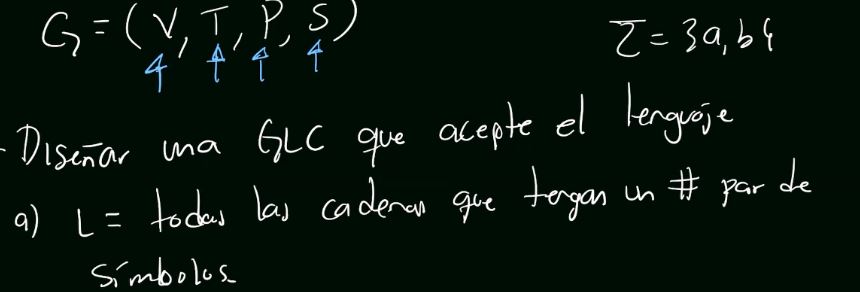 G = (V, T, P, S) Σ = {a, b}
- Diseñar una GLC que acepte el lenguaje
a) L = todas las cadenas que tengan un # par de
símbolos